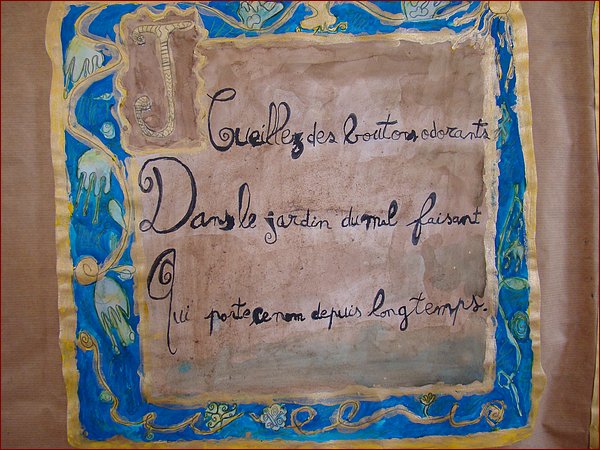 J
Cueillez des boutons odorants
Dans le jardin du mal faisant
Qui porte ce nom depuis longtemps.